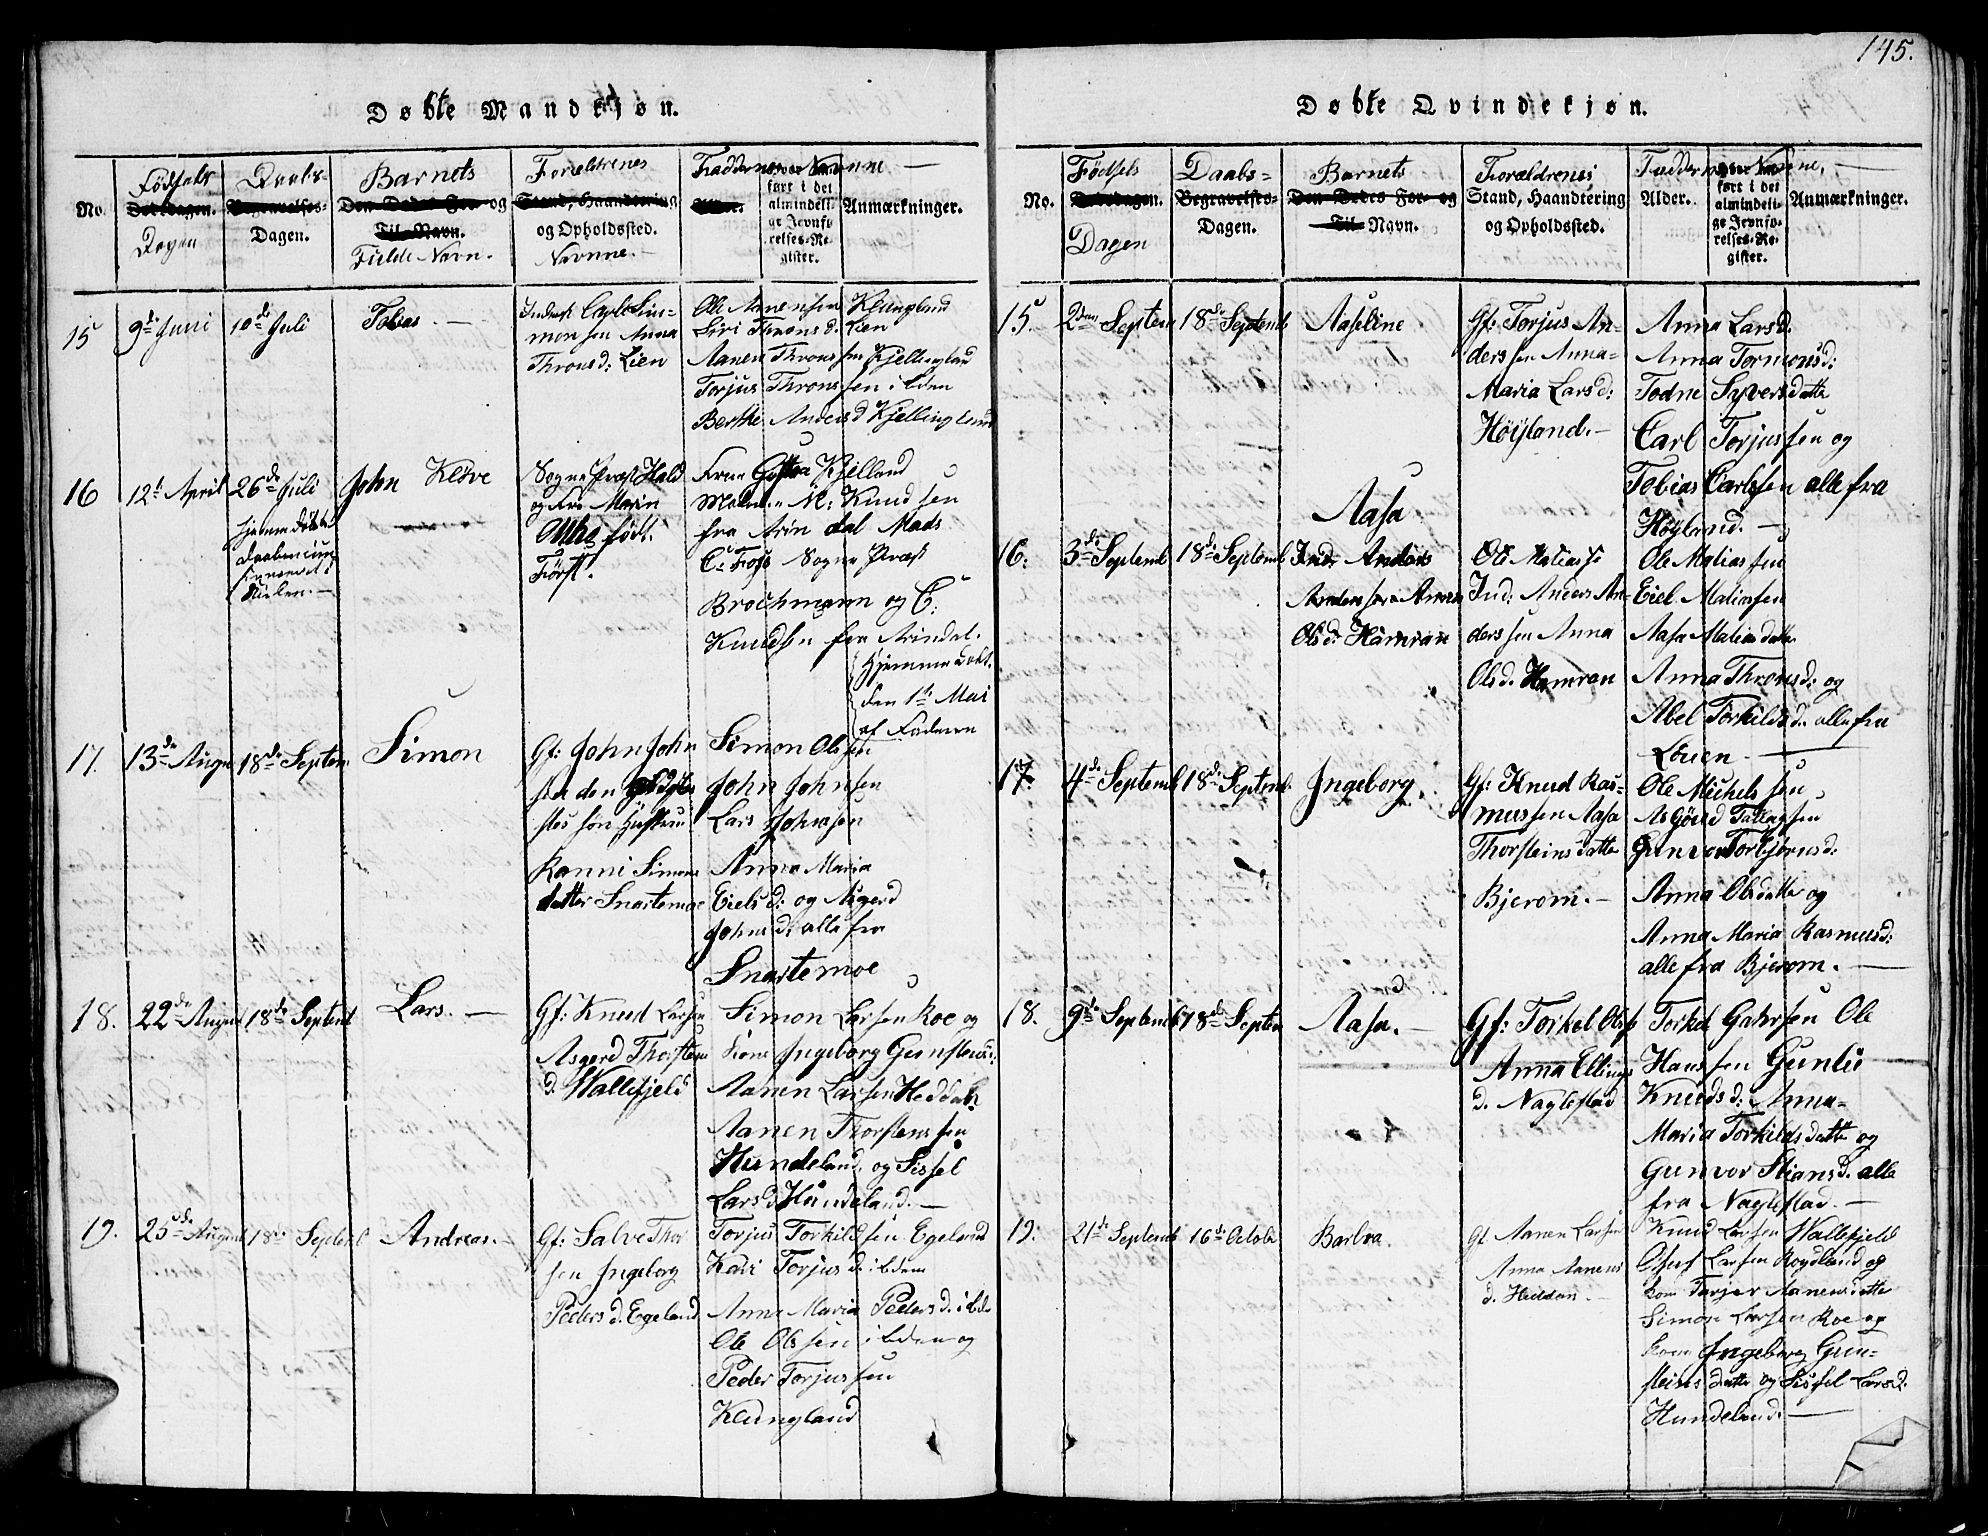 145.
Døbte Mandkjøn.
No.
Fødsels
Dagen
Daabs-
Dagen.
Barnets
Fulde Navn.
Forældrenes
Stand, Haandtering
og Opholdssted.
Navne.
Faddernes Navne
Anmærkninger.
15
9de Juni
10de Juli
Tobias.
Inderst Carl Sim-
monsen Anna
Thronsd: Lien
Ole Aanensen Klungland
Siri Thronsd: Lien
Aanen Thronssen Kjellingland
Torjus Thronssen ibden
Berthe Andersd Kjellingland
16
12te April
26de Juli
hjemmedøbt
John Kløve
Sogne Præst Hald
og Fru Maren
født.
Først.
Frue Kjelland
M: Knudsen
fra Arindal Mads
C: Foss Sogne Præst
Brochmann og C:
Knudsen fra Arindal.
Hjemmedøbt.
den 1te Mai
af Faderen
17.
13de August
18de Septem
Simon
Gf: John John
sen den
Ranni Simons
datter Snartemoe
Simon Olssen
John Johnsen
Lars Johnsen
Anna Maria
Eielsd: og Asgerd
Johnsd: alle fra
Snartemoe
18.
22de August
18de Septemb
Lars.
Gf: Knud Larsen
Asgerd Thorstens
d. Wallefjeld
Simon Larsen Roe og
Kone Ingeborg Gunsteinsd:
Aanen Larsen Heddan
Aanen Thorstenssen
Hundeland. og Sissel
Larsd Hundeland.
19.
25de August
18de Septemb
Andreas.
Gf: Salve Thor
sen Ingeborg
Pedersd. Egeland
Torjus Torkildssen Egeland
Kari Torjusd: ibdem
Anna Maria Pedersd. ibde
Ole Olssen ibden og
Peder Torjussen
Klungland
Døbte Qvindekjøn.
No.
Fødsels
Dagen
Daabs-
Dagen.
Barnets
Navn.
Forældrenes
Stand, Haandtering
og Opholdssted.
Faddernes Navne.
Alder.
Anmærkninger.
15.
2den Septem
18de Septemb
Aaseline
Gf: Torjus An-
derssen Anna-
Maria Larsd:
Høiland.
Anna Larsd.
Anna Tormonsd:
Todne Syversdatte
Carl Torjussen og
Tobias Carlssen alle fra
Høyland.
16.
3de Septemb
18de Septemb
Aasa
Ind: Anders
Anderssen Anna
Olsd: Hamran
Ole Matiass
Ind: Anders An-
derssen Anna
Olsd. Hamran
Ole Matiassen
Eiel Matiassen
Aasa Matiasdatte
Anna Thronsd: og
Abel Torkildsd. alle fra
Louen.
17.
4de Septemb
18de Septemb
Ingeborg.
Gf: Knud Ras-
mussen Aasa
Thorsteinsdatte
Bjerom.
Ole Michelssen
Asgoud Tallagsen
Gunvor Torbjørnsd:
Anna Olsdatte og
Anna Maria Rasmusd:
alle fra Bjerom.
18.
9de Septemb
18de Septem
Aasa.
Gf: Torkel Olss
Anna Ellings
d. Naglestad
Torkel Gahrsen Ole
Hanssen Gunild
Knudsd: Anna-
Maria Torkildsdatte og
Gunvor Stiansd. alle
fra Naglestad.
19.
21de Septemb
16de Octobr
Barbra.
Gf. Aanen Larsen
Anna Aanens
d. Heddan.
Knud Larsen Wallefjeld
Larsen Roydland og
kone Tarjer Aanensdatte
Simon Larsen Roe og
kone Ingeborg Gun-
steinsdatte og Sissel Larsd.
Hundeland.